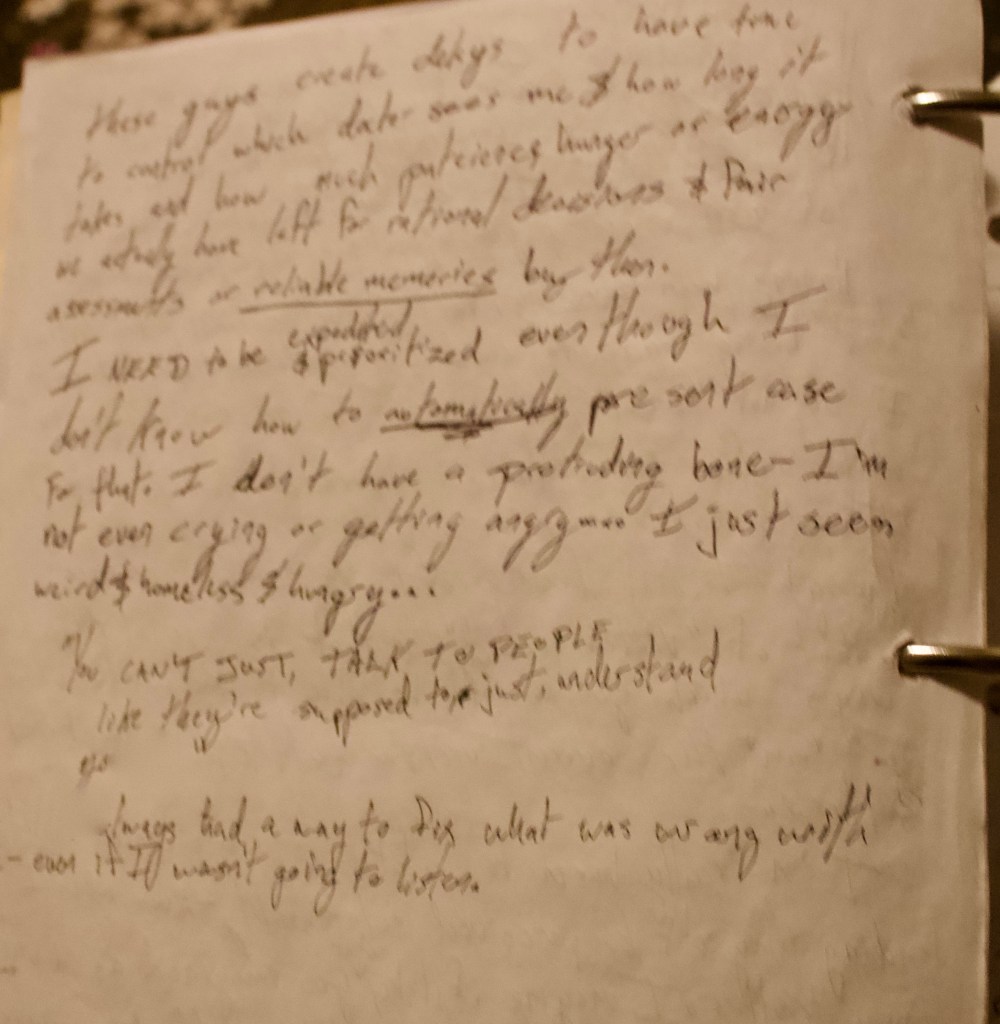 these guys create delays to have time
to control which date sees me & how long it
takes and how much patience, hunger or energy
we actually have left for rational decisions & fair
assessmetts or reliable memories by then.
expedited
I NEED to be & prioritized even though I
don't know how to automatically present case
for that. I don't have a protruding bone - I'm
not even crying or getting angry... I just seem
weird & homeless & hungry...
"You CAN'T JUST, TALK TO PEOPLE
like they're supposed to, just, understand
"
always had a way to fix what was wrong with
- even if I wasn't going to listen.